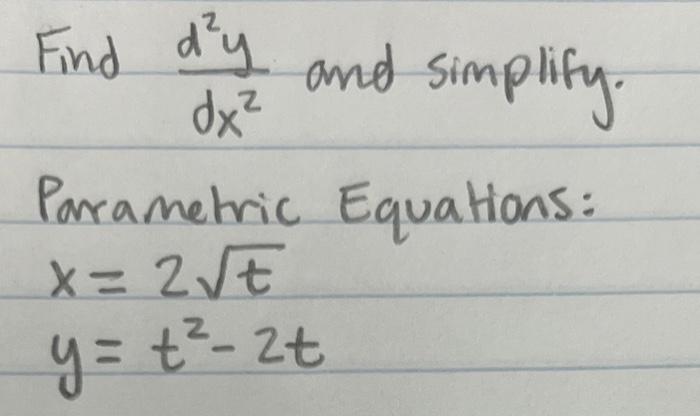 Find d²y/dx² and simplify.
Parametric Equations:
x = 2√t
y = t² - 2t